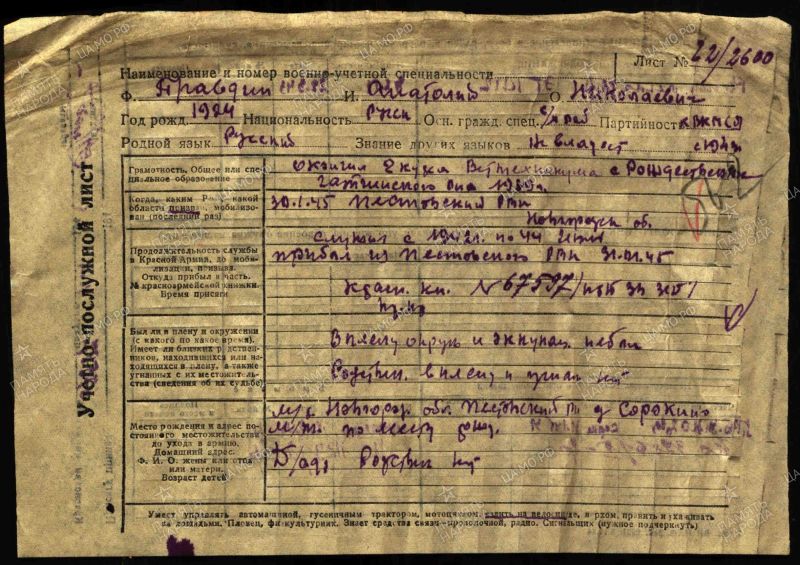 Учетно-послужной лист
Лист № 22/2600
Наименование и номер военно-учетной специальности
Ф. Правдин И. Анатолий О. Николаевич
Год рожд. 1924 Национальность Русск Осн. гражд. спец. Партийность
Родной язык Русский Знание других языков не владеет с 1943г
Грамотность. Общее или специальное образование
окончил 2 курса Ветехникума с Рождествено
Гатчинского р-на 1939г.
Когда, каким РВК какой области призван, мобилизован (последний раз)
30.1.45 Пестовский РВК
Новгородск об.
Продолжительность службы в Красной Армии, до мобилизации, призыва. Откуда прибыл в часть. № красноармейской книжки. Время присяги
служил с 1942г. по 44
прибыл из Пестовского РВК 31.01.45
Красн. кн. № 67597
Был ли в плену и окружении (с какого по какое время). Имеет ли близких родственников, находившихся или находящихся в плену, а также угнанных с их местожительства (сведения об их судьбе)
В плену окруж и оккупац не был
Родствен. в плену и угнан нет
Место рождения и адрес постоянного местожительства до ухода в армию. Домашний адрес. Ф. И. О. жены или отца или матери. Возраст детей
м/р Новгород. обл. Пестовский р-н д Сорокино
М/ж. по месту рожд.
Д/адр Родствен нет
Умеет управлять автомашиной, гусеничным трактором, мотоциклом, ездить на велосипеде, верхом, править и ухаживать
за лошадьми. Пловец, физкультурник. Знает средства связи—проволочной, радио. Сигнальщик (нужное подчеркнуть)
ЦАМО.РФ
ПАМЯТЬ НАРОДА